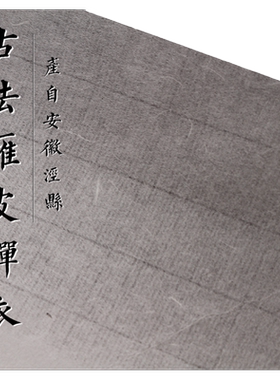 產自安徽涇縣
古法雁皮蟬衣